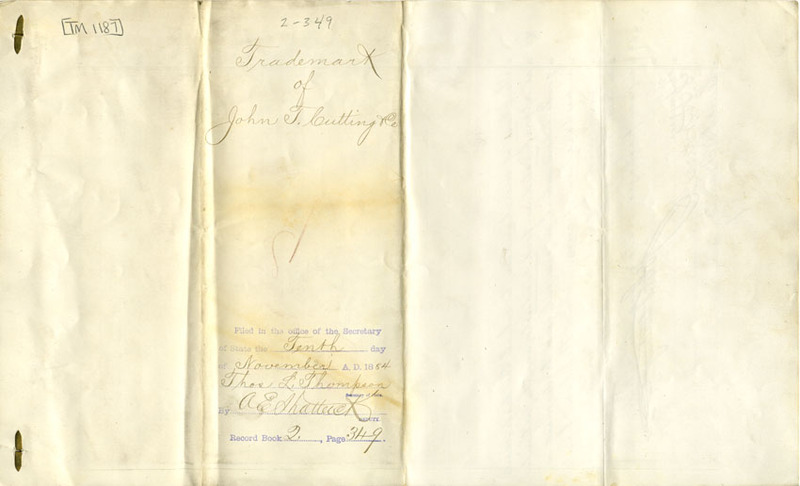 [TM 1187]
2-349
Trademark
of
John T. Cutting & Co
Filed in the office of the Secretary
of State the Tenth day
of November A.D. 1884
Thos L. Thompson
By A E Shattuck
Record Book 2, Page 349.